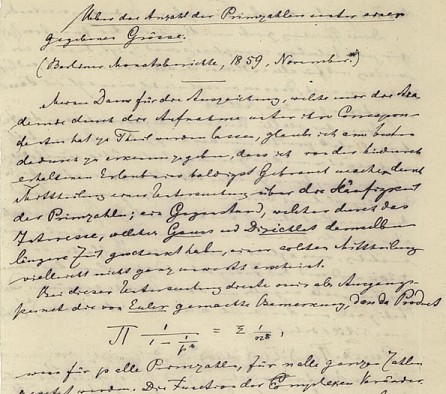 Ueber die Anzahl der Primzahlen unter einer
gegebenen Grösse.
(Berliner Monatsberichte, 1859, November.)
Meinen Dank für die Auszeichnung, welche mir die Aka-
demie durch die Aufnahme unter ihre Correspon-
denten hat zu Theil werden lassen, glaube ich am besten
dadurch zu erkennen zu geben, dass ich von der hiedurch
erhaltenen Erlaubniss baldigst Gebrauch mache durch
Mittheilung einer Untersuchung über die Häufigkeit
der Primzahlen; ein Gegenstand, welcher durch das
Interesse, welches Gauss und Dirichlet demselben
längere Zeit geschenkt haben, einer solchen Mittheilung
vielleicht nicht ganz unwerth erscheint.
Bei dieser Untersuchung diente mir als Ausgangs-
punkt die von Euler gemachte Bemerkung, dass das Product
∏ 1/(1 − 1/p^s) = Σ 1/n^s,
wenn für p alle Primzahlen, für n alle ganzen Zahlen
gesetzt werden. Die Function der complexen Veränder-